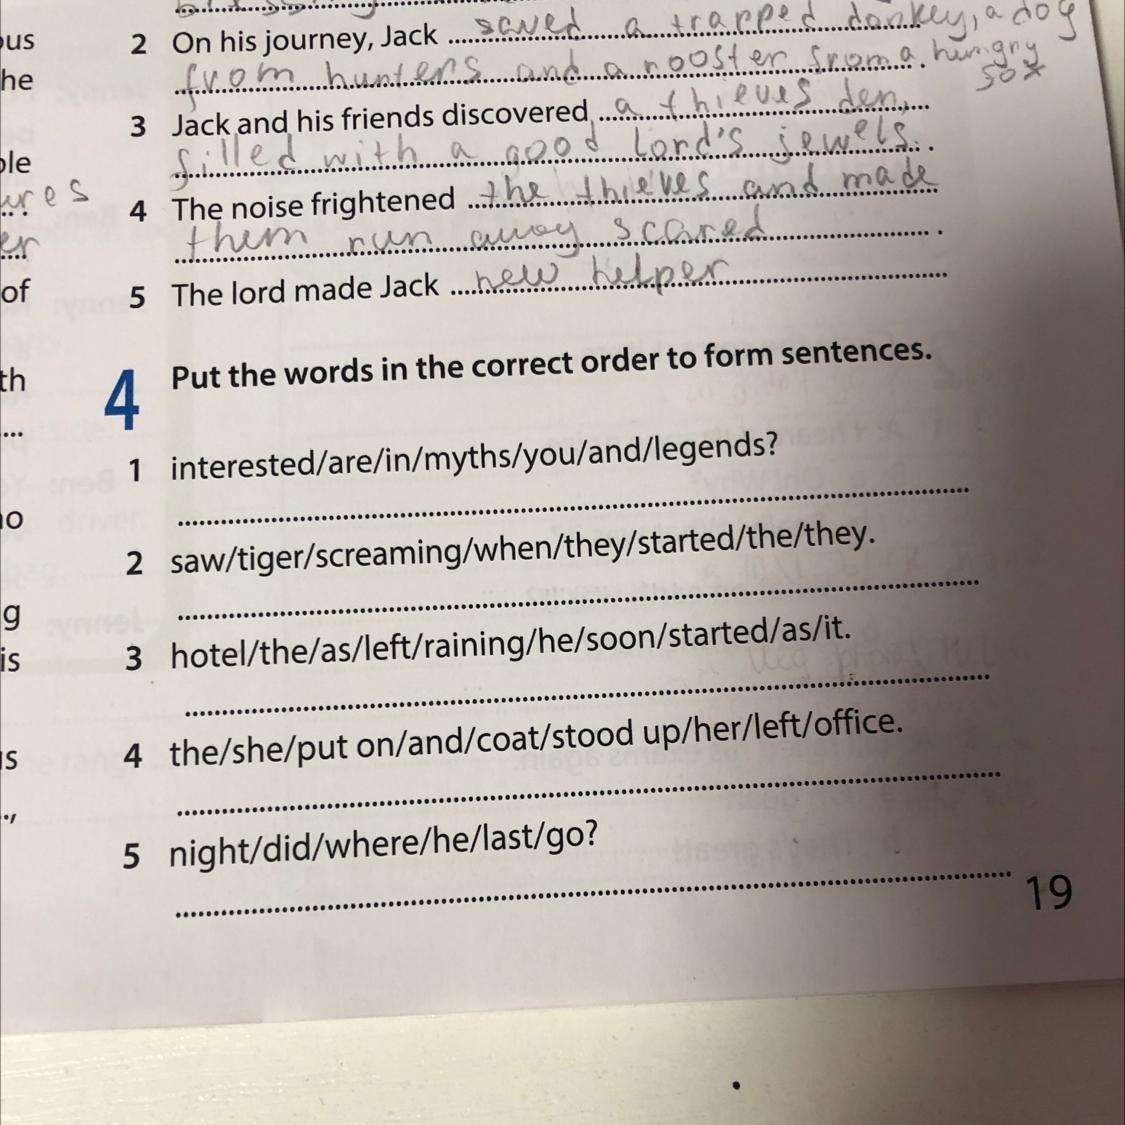 ous
2 On his journey, Jack saved a trapped donkey, a dog
he
from hunters and a rooster from a hungry
fox
3 Jack and his friends discovered a thieves den,
ole
filled with a good lord's jewels.
ures
4 The noise frightened the thieves and made
er
them run away scared
of
5 The lord made Jack new helper
th
4 Put the words in the correct order to form sentences.
1 interested/are/in/myths/you/and/legends?
2 saw/tiger/screaming/when/they/started/the/they.
g
is
3 hotel/the/as/left/raining/he/soon/started/as/it.
4 the/she/put on/and/coat/stood up/her/left/office.
5 night/did/where/he/last/go?
19